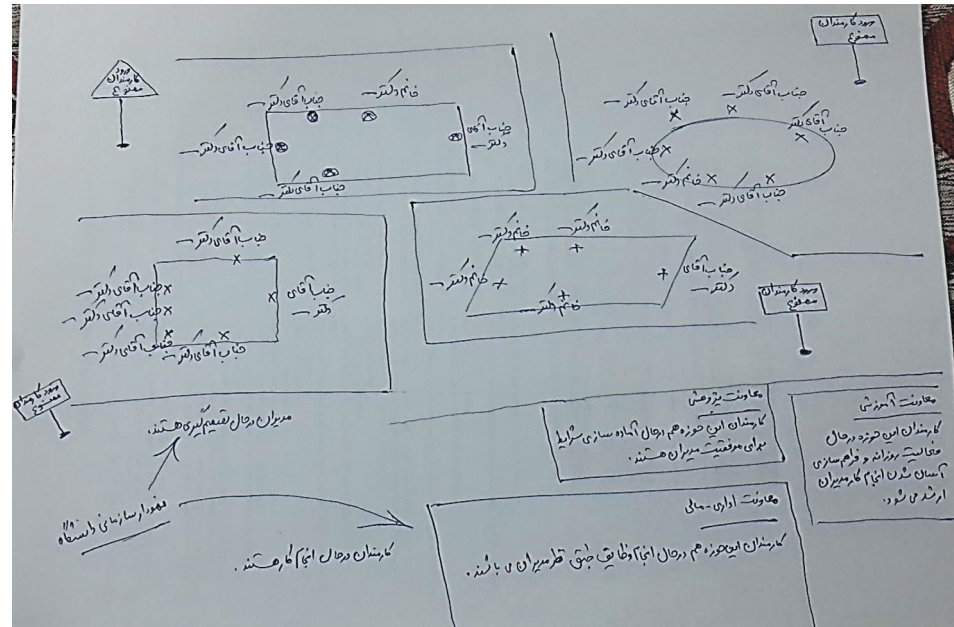 ورود
کارمندان
ممنوع
ورود کارمندان
ممنوع
جناب آقای دکتر –
خانم دکتر –
جناب آقای دکتر –
جناب آقای
دکتر –
جناب آقای دکتر –
جناب آقای دکتر –
جناب آقای دکتر –
جناب آقای دکتر
جناب آقای دکتر –
خانم دکتر –
جناب آقای دکتر –
جناب آقای دکتر –
جناب آقای دکتر –
جناب آقای دکتر –
جناب آقای
دکتر –
جناب آقای دکتر –
جناب آقای دکتر –
خانم دکتر –
خانم دکتر –
خانم دکتر –
جناب آقای
دکتر –
خانم دکتر –
ورود کارمندان
ممنوع
ورود کارمندان
ممنوع
مدیران درحال تصمیم گیری هستند.
نمودار سازمانی دانشگاه
کارمندان درحال انجام کار هستند.
معاونت پژوهشی
کارمندان این حوزه هم درحال آماده سازی شرایط
برای موفقیت مدیران هستند.
معاونت آموزشی
کارمندان این حوزه درحال
فعالیت روزانه و فراهم سازی
آسان شدن انجام کار مدیران
ارشد می شود.
معاونت اداری-مالی
کارمندان این حوزه هم درحال انجام وظایف طبق نظر مدیران می باشند.